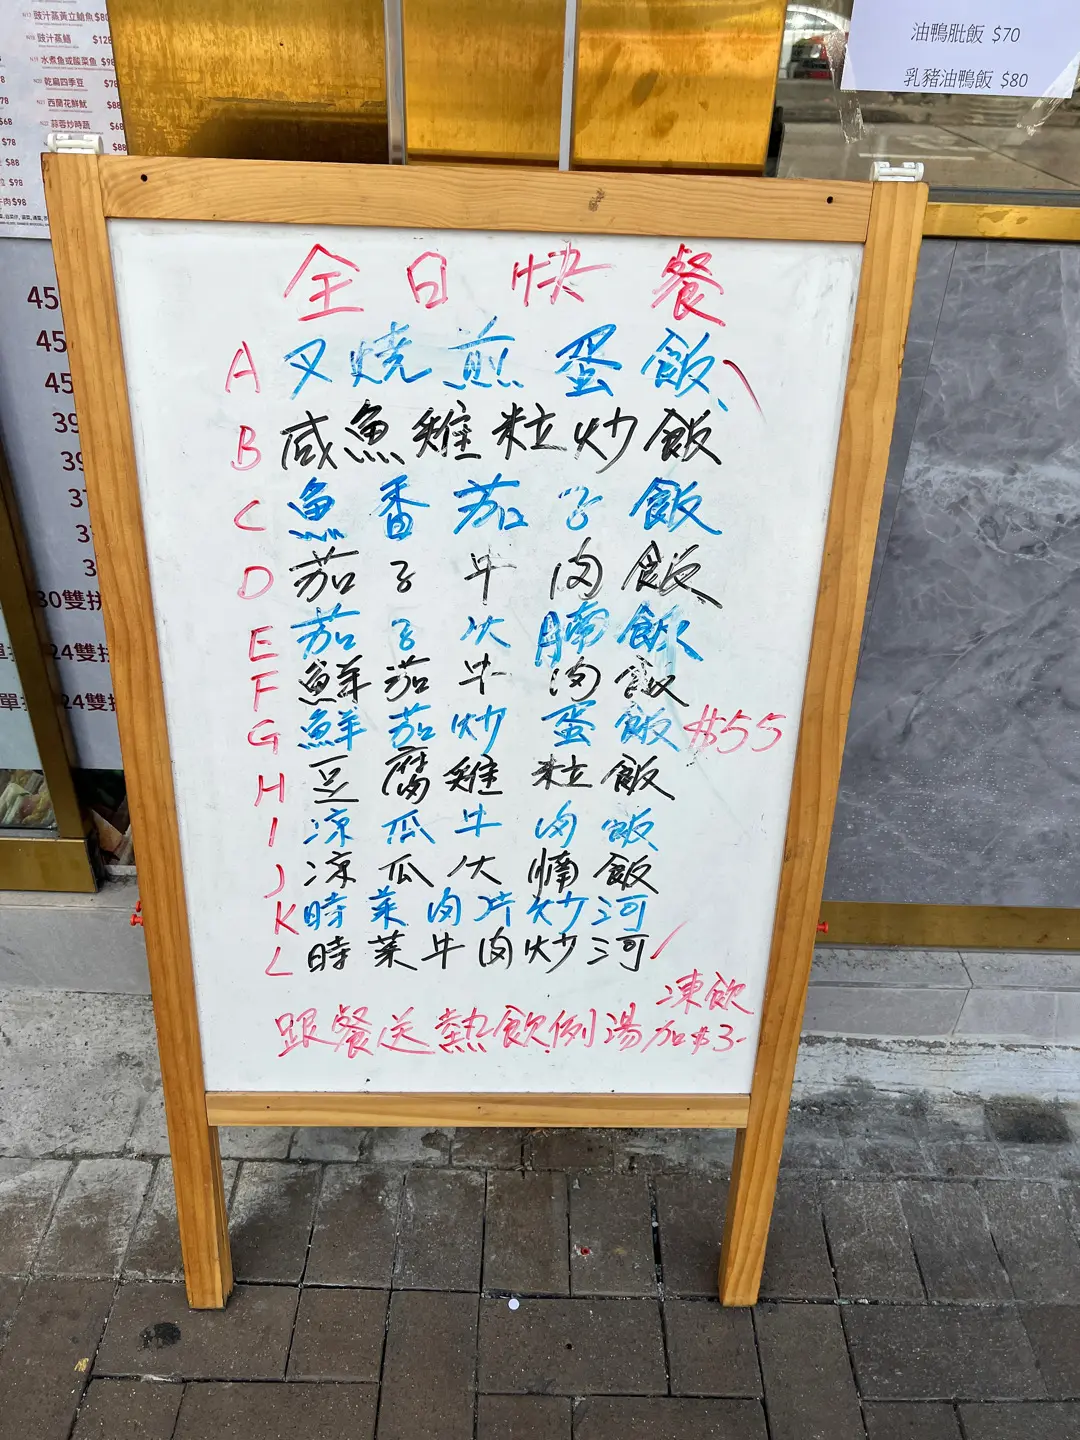 N15 豉汁蒸黃立鯧魚 $80
豉汁蒸鱔 $128
水煮魚或酸菜魚 $98
乾扁四季豆 $78
西蘭花鮮魷 $88
蒜蓉炒時蔬 $68
$88
$68
$78
$88
$98
牛肉 $98
油鴨肶飯 $70
乳豬油鴨飯 $80
45
45
45
39
39
37
37
3
30雙拼
24雙拼
單拼 24雙拼
全日快餐
A 叉燒煎蛋飯
B 咸魚雞粒炒飯
C 魚香茄子飯
D 茄子牛肉飯
E 茄子伙腩飯
F 鮮茄牛肉飯
G 鮮茄炒蛋飯 $55
H 豆腐雞粒飯
I 涼瓜牛肉飯
J 涼瓜伙腩飯
K 時菜肉片炒河
L 時菜牛肉炒河
跟餐送熱飲例湯 凍飲加$3-